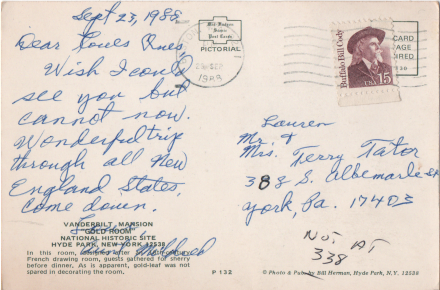 Sept 23, 1988
Dear Loves Ones,
Wish I could
see you but
cannot now.
Wonderful trip
through all New
England States.
Come down.
Love,
Aunt Mildred
VANDERBILT MANSION
GOLD ROOM
NATIONAL HISTORIC SITE
HYDE PARK, NEW YORK 12538
In this room,
French drawing room, guests gathered for sherry
before dinner. As is apparent, gold-leaf was not
spared in decorating the room.
P 132
PICTORIAL
1988
Buffalo Bill Cody
USA 15
CARD
AGE
IRED
Lauren
Mr. &
Mrs. Terry Tator
388 S. Albemarle St
York, Pa. 17403
NOT AT
338
© Photo & Pub. by Bill Herman, Hyde Park, N.Y. 12538